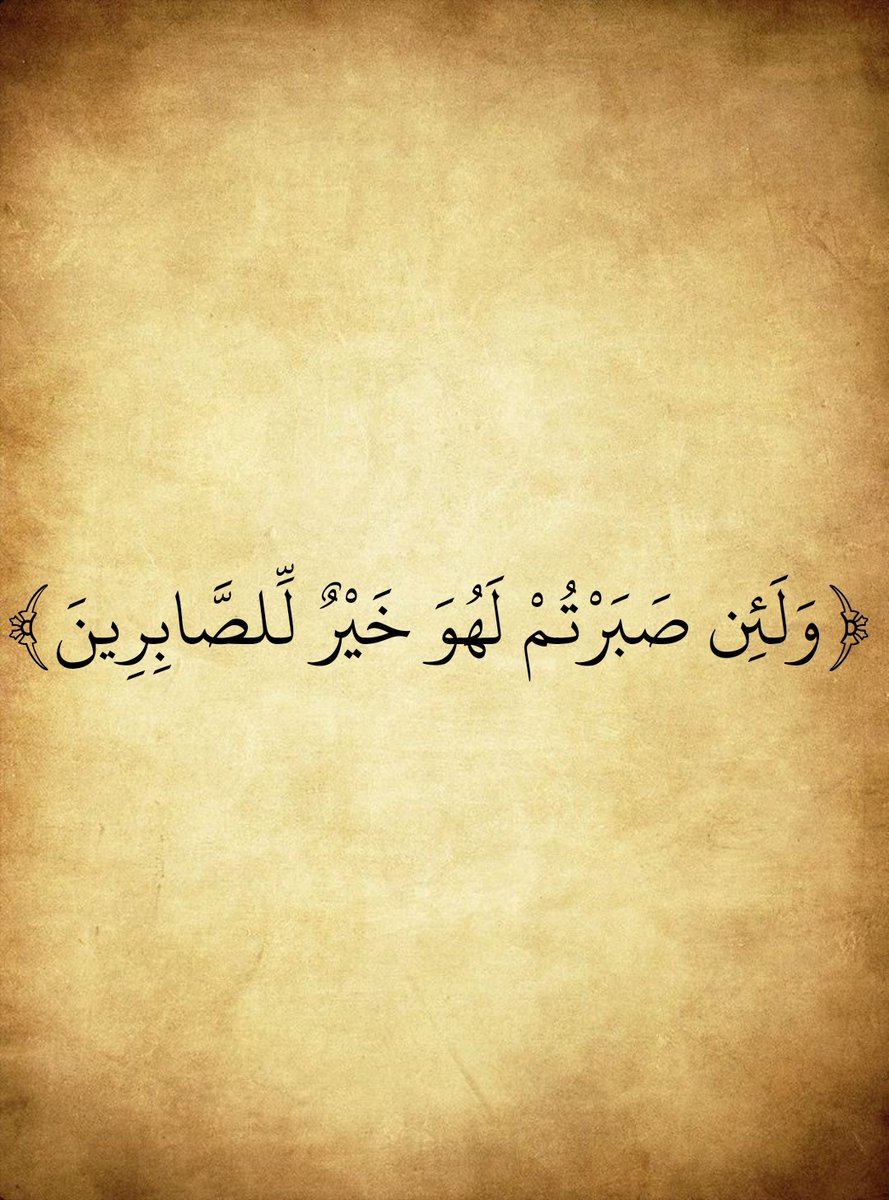 ﴿ وَلَئِن صَبَرْتُمْ لَهُوَ خَيْرٌ لِّلصَّابِرِينَ ﴾